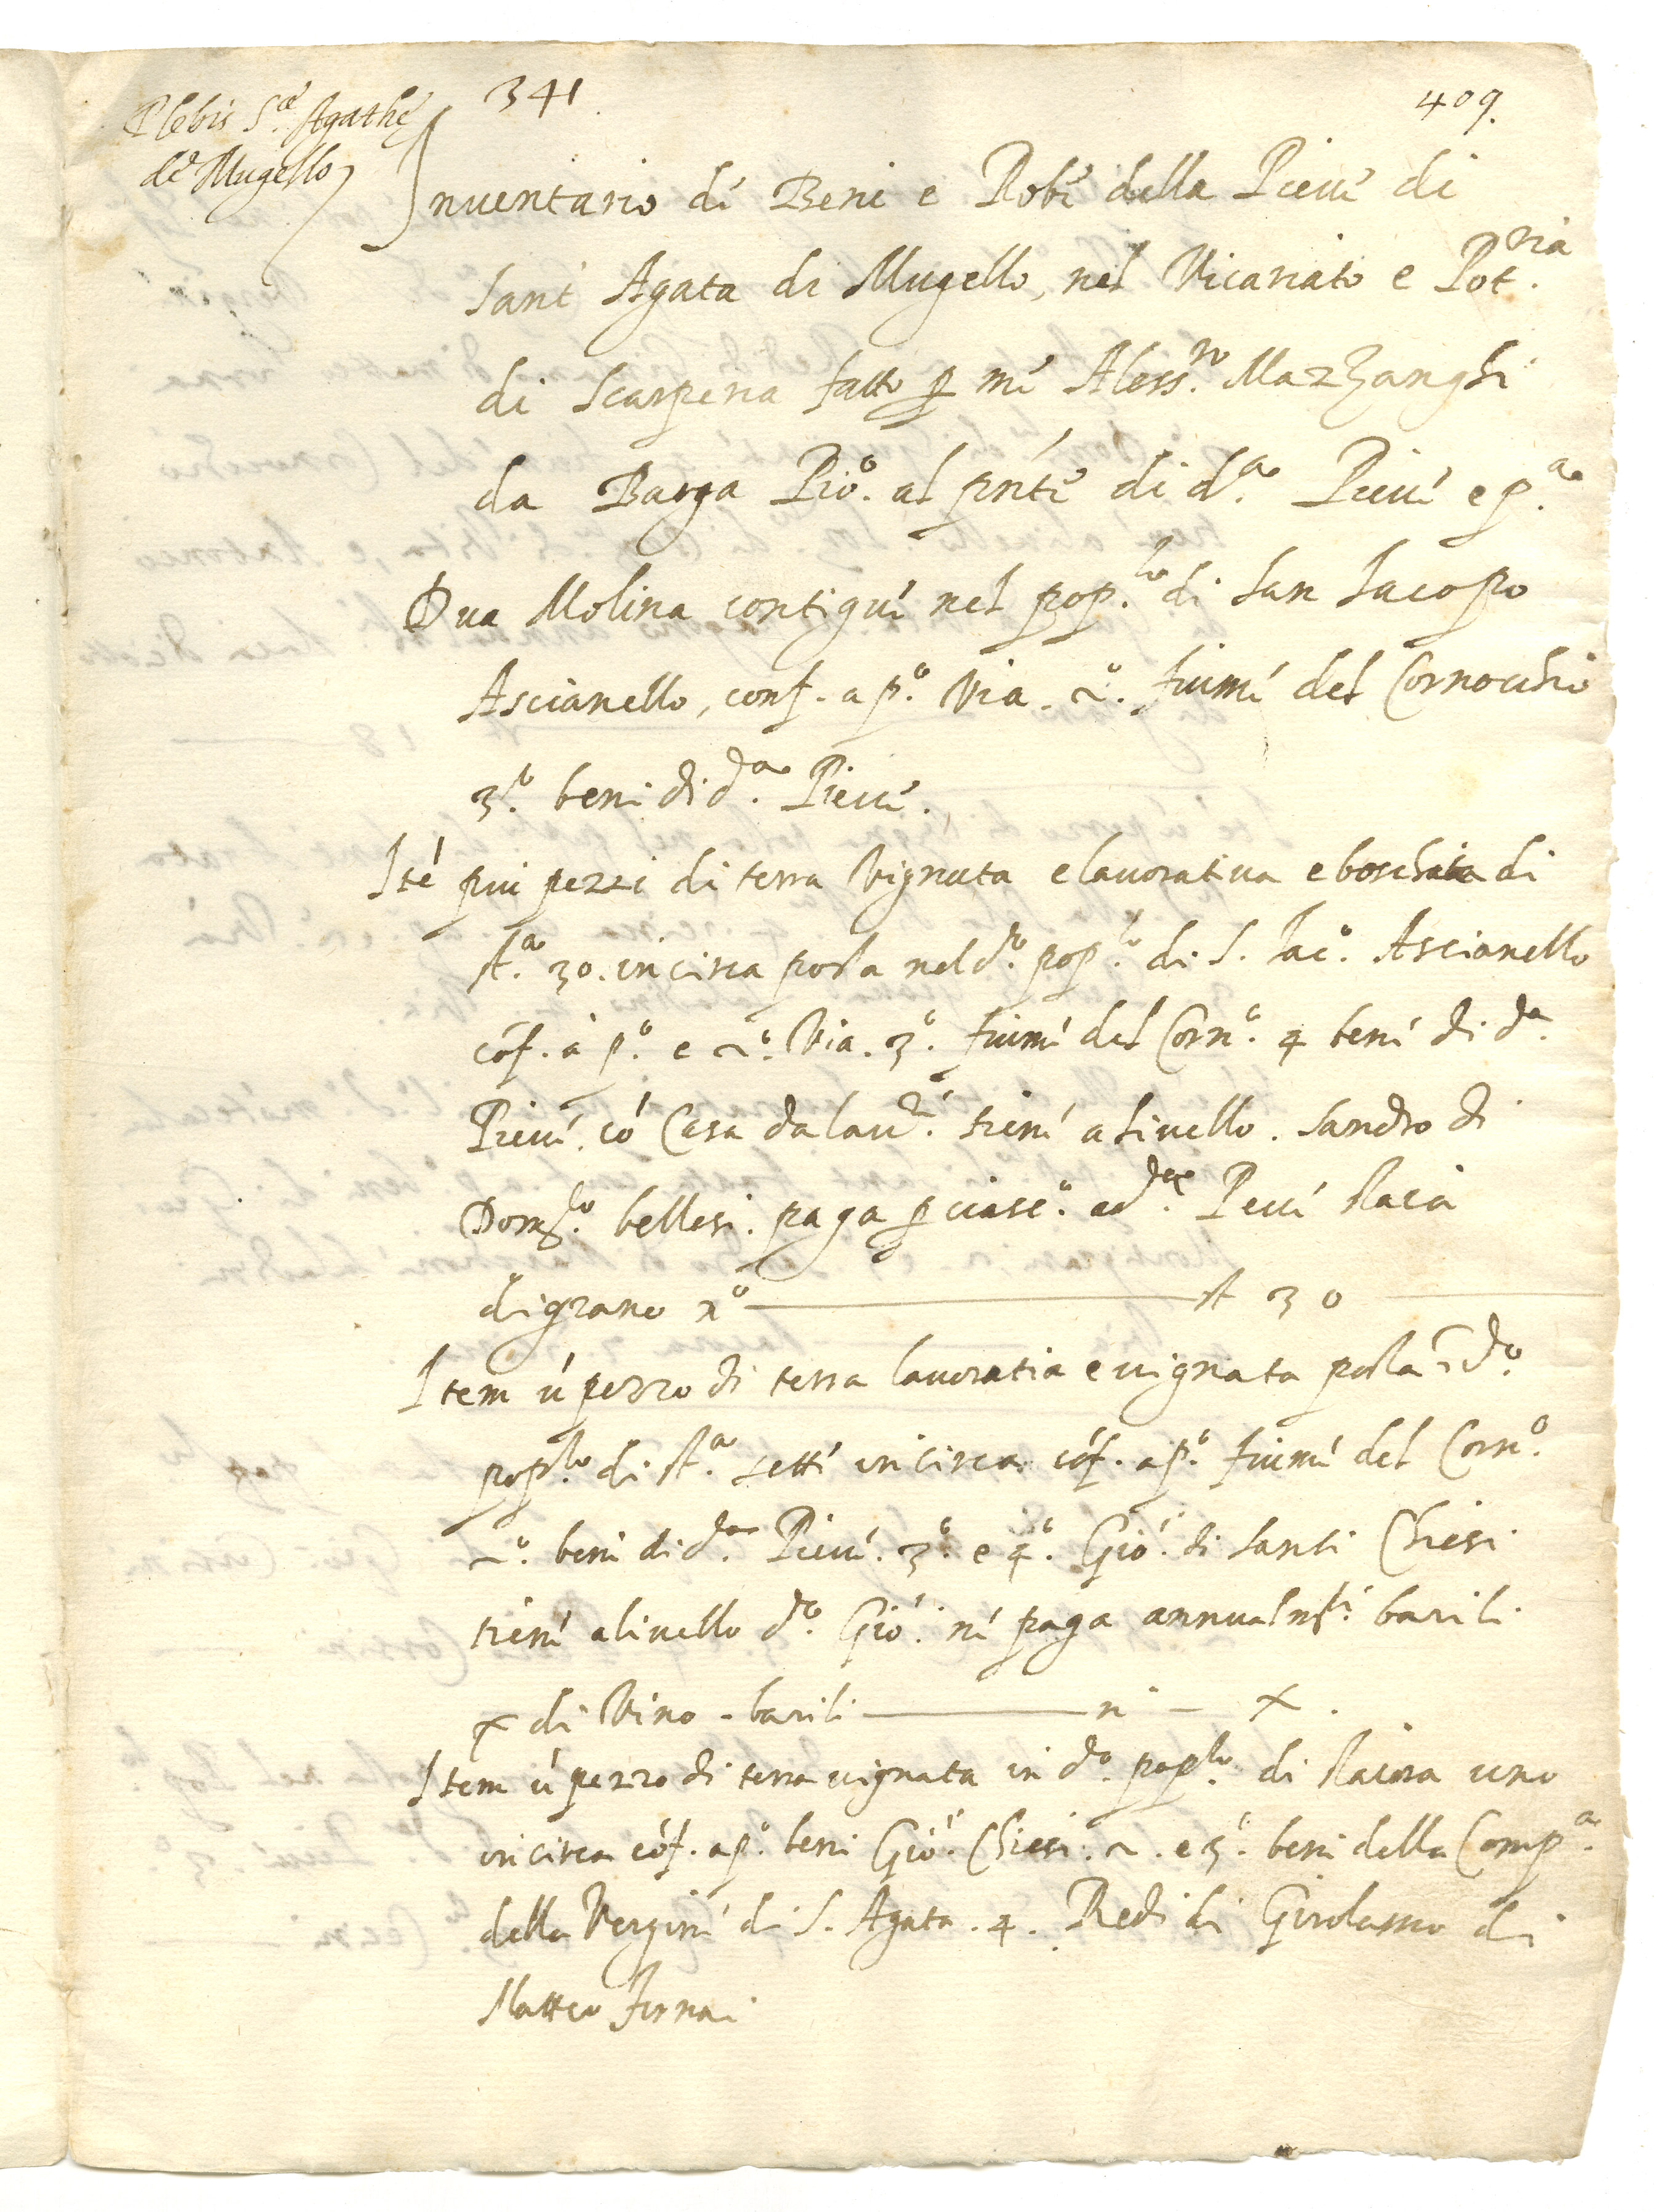 Plebis S.ae Agathe
de Mugello
341
409.
Inventario de Beni e Robe della Pieve di
Sant Agata di Mugello, nel Vicariato e Pot.ria
di Scarperia fatto p me Aless.ro Mazzanghi
da Barga Pio.o al pnte di d.a Pieve e p.a
Dua Molina contigue nel pop.lo di San Jacopo
Ascianello, conf. a p.o Via. 2.o fiume del Cornocchio
3.o beni di d.a Pieve.
Ite piu pezzi di terra vignata e lavorativa e boschata di
st.a 30. incirca posta nel d.o pop.lo di S. Jac.o Ascianello
cof. a p.o e 2.o Via. 3.o fiume del Corn.o 4 beni di d.a
Pieve, co Casa da lav.re tiene a livello. Sandro di
Dom.co bellesi. paga p ciasc.o ad.a Pevé staia
di grano n.o — st 30
Item ú pezzo di terra lavoratia e vignata posta i d.o
pop.lo di st.a sette incirca cóf. a p.o fiume del Corn.o
2.o beni di d.a Pieve. 3.o e 4.o Gio. di Santi Chiesi
tiene a livello d.o Gio. ne paga annualmte barili
x di Vino - barili — n — x.
Item ú pezzo di terra vignata in d.o pop.lo di staiora uno
incirca cóf. a p.o beni Gio. Chiesi. 2. e 3.o beni della Comp.a
della Vergine di S. Agata. 4. Redi di Girolamo di
Matteo fornai